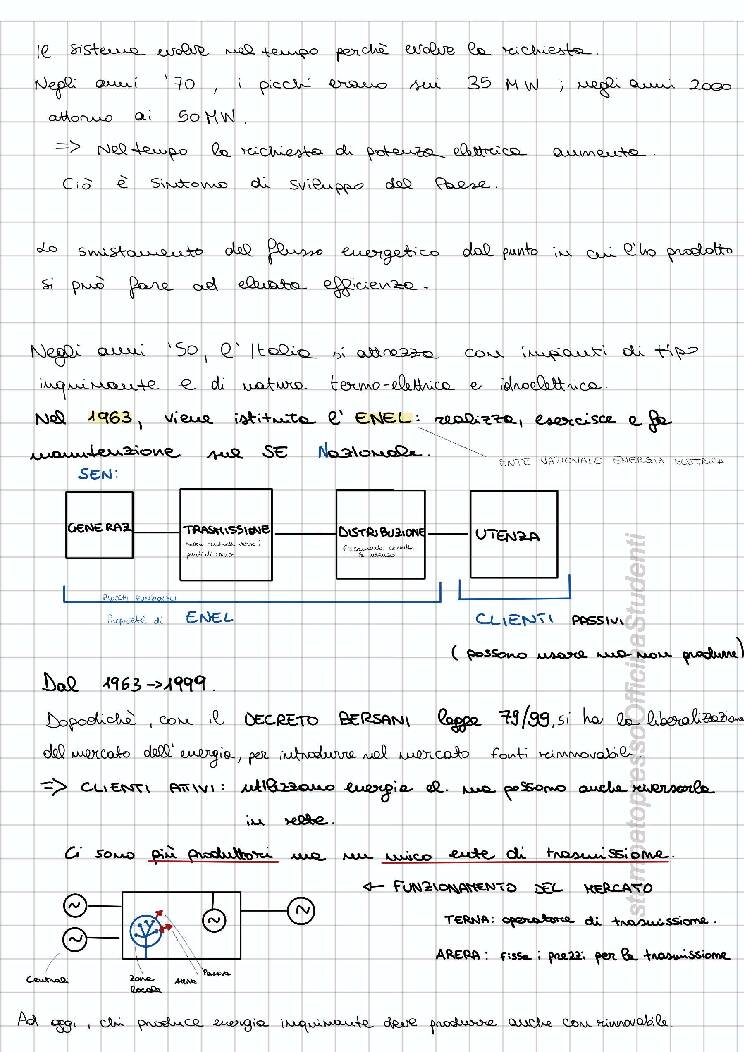 Il sistema evolve nel tempo perchè evolve la richiesta.
Negli anni '70, i picchi erano sui 35 MW ; negli anni 2000
attorno ai 50 MW.
=> Nel tempo la richiesta di potenza elettrica aumenta.
Ciò è sintomo di sviluppo del Paese.
Lo smistamento del flusso energetico dal punto in cui l'ho prodotto
si può fare ad elevata efficienza.
Negli anni '50, l'Italia si attrezza con impianti di tipo
inquinante e di natura termo-elettrica e idroelettrica.
Nel 1963, viene istituita l' ENEL: realizza, esercisce e fa
manutenzione sul SE Nazionale.
ENTE NAZIONALE ENERGIA ELETTRICA
SEN:
GENERAZ
TRASMISSIONE
DISTRIBUZIONE
UTENZA
Proprietà di ENEL
CLIENTI PASSIVI
(possono usare ma non produrre)
Dal 1963->1999.
Dopodichè, con il DECRETO BERSANI legge 79/99, si ha la liberalizzazione
del mercato dell'energia, per introdurre nel mercato fonti rinnovabili.
=> CLIENTI ATTIVI: utilizzano energia el. ma possono anche riversarla
in rete.
Ci sono più produttori ma un unico ente di trasmissione.
<- FUNZIONAMENTO DEL MERCATO
TERNA: operatore di trasmissione.
ARERA: fissa i prezzi per la trasmissione
Centrali
Zona locale
Attiva
Passiva
Ad oggi, chi produce energia inquinante deve produrre anche con rinnovabile.
stampatopressoOfficinaStudenti